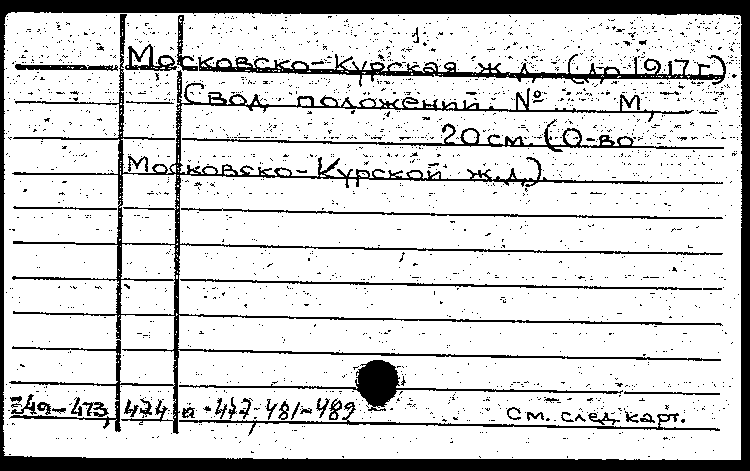 1.
Московско-Курская ж.д. (до 1917 г.).
Свод положений. № ... М,
20 см. (О-во
Московско-Курской ж.д.).
473, 474 а-477, 481-489
См. след. карт.